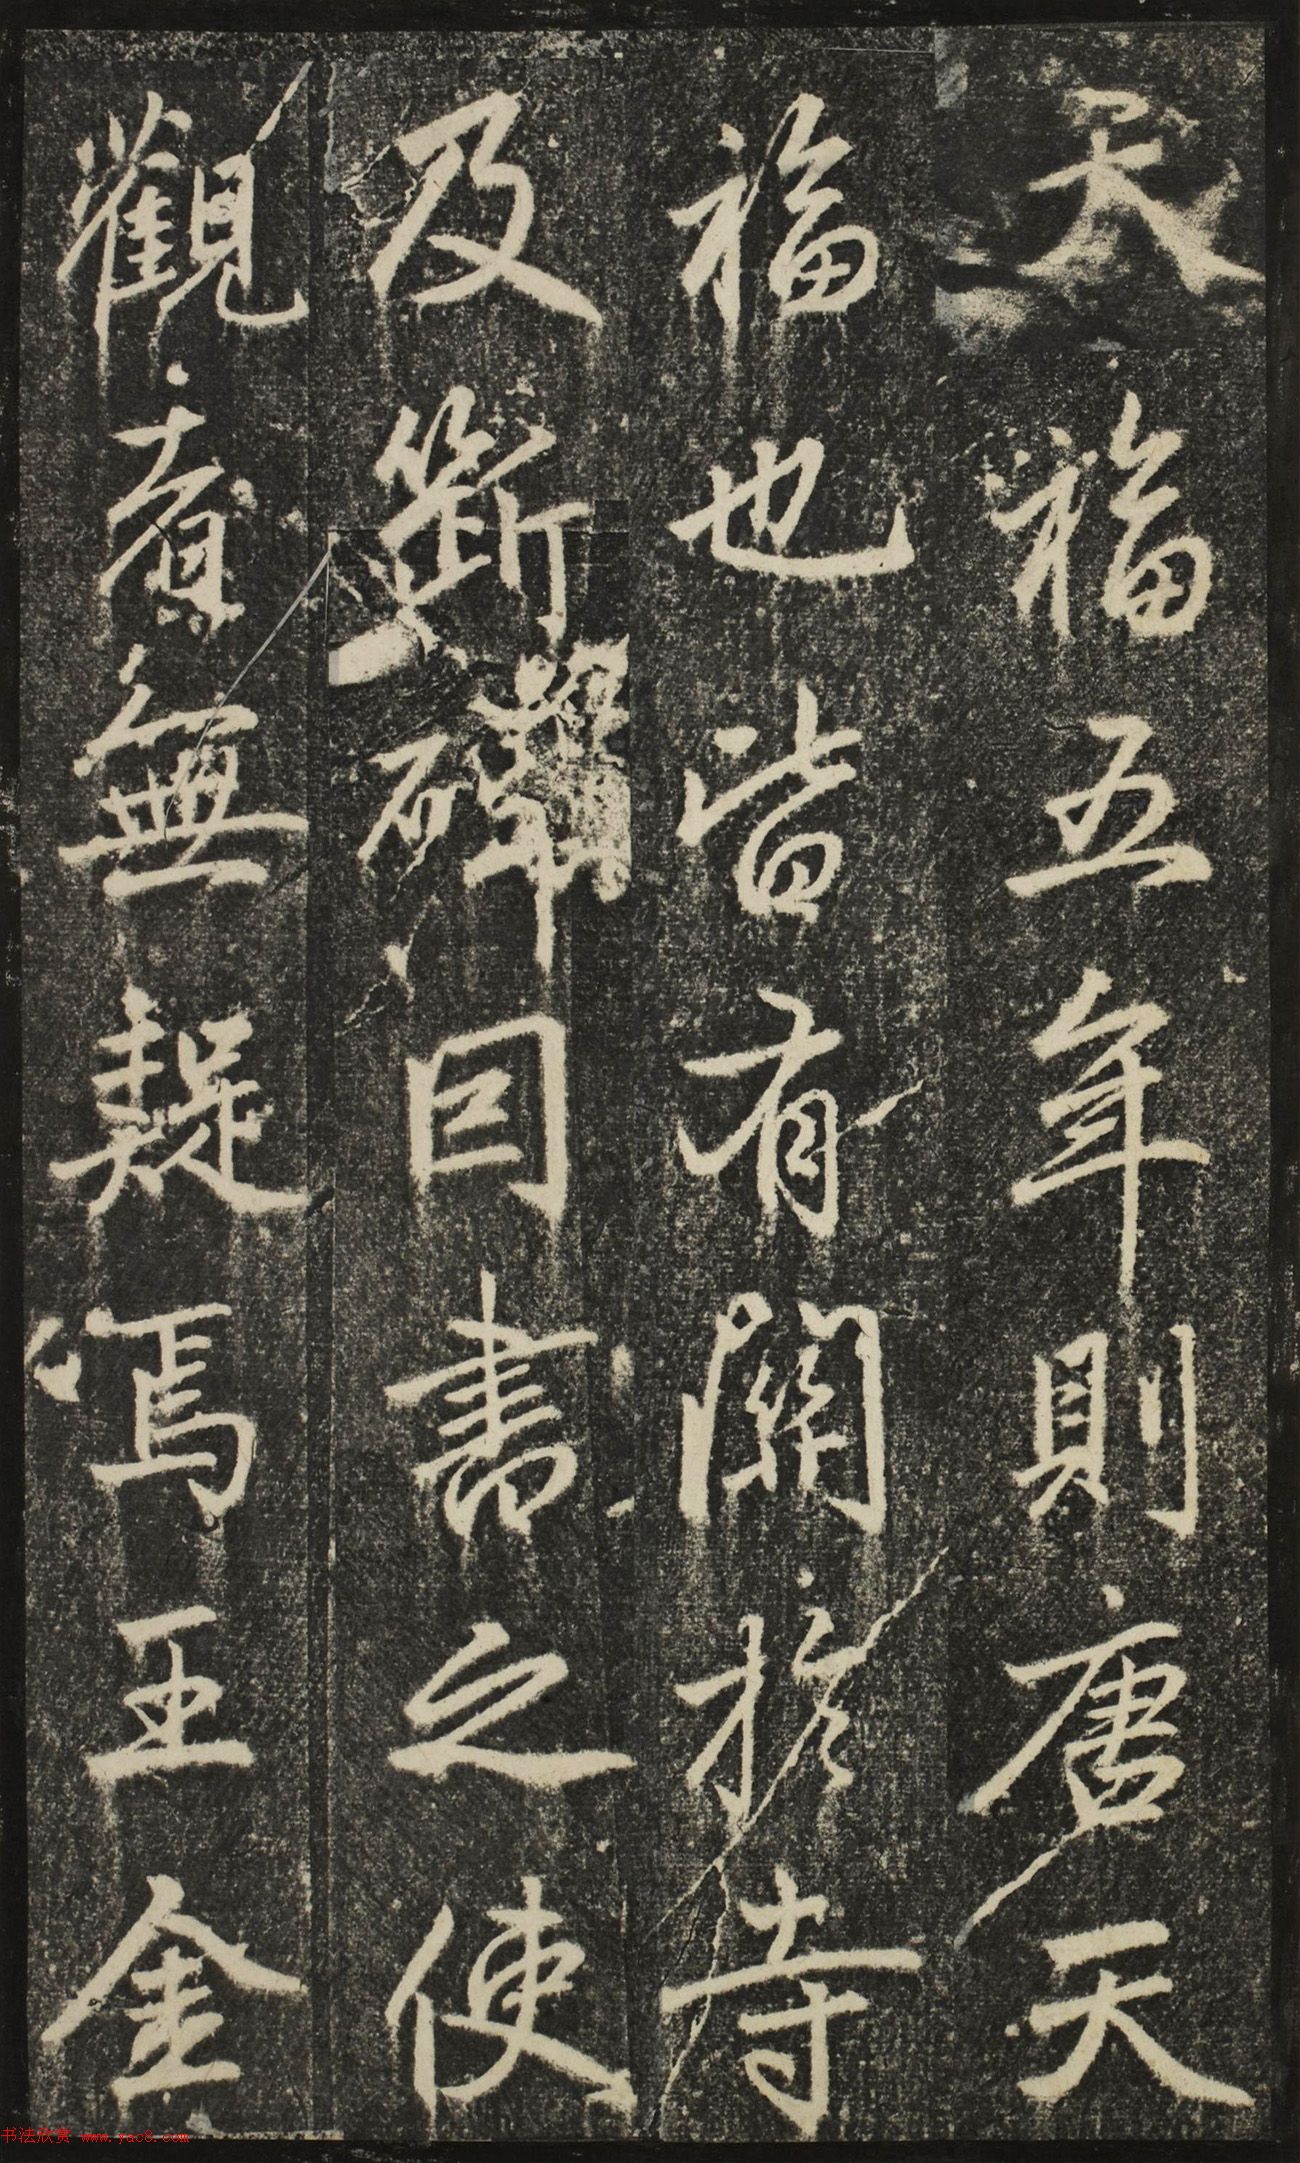 天福五年則唐天
福也皆有關於寺
及斷碑因書之使
觀者無疑焉王金
书法欣赏 www.yac8.com